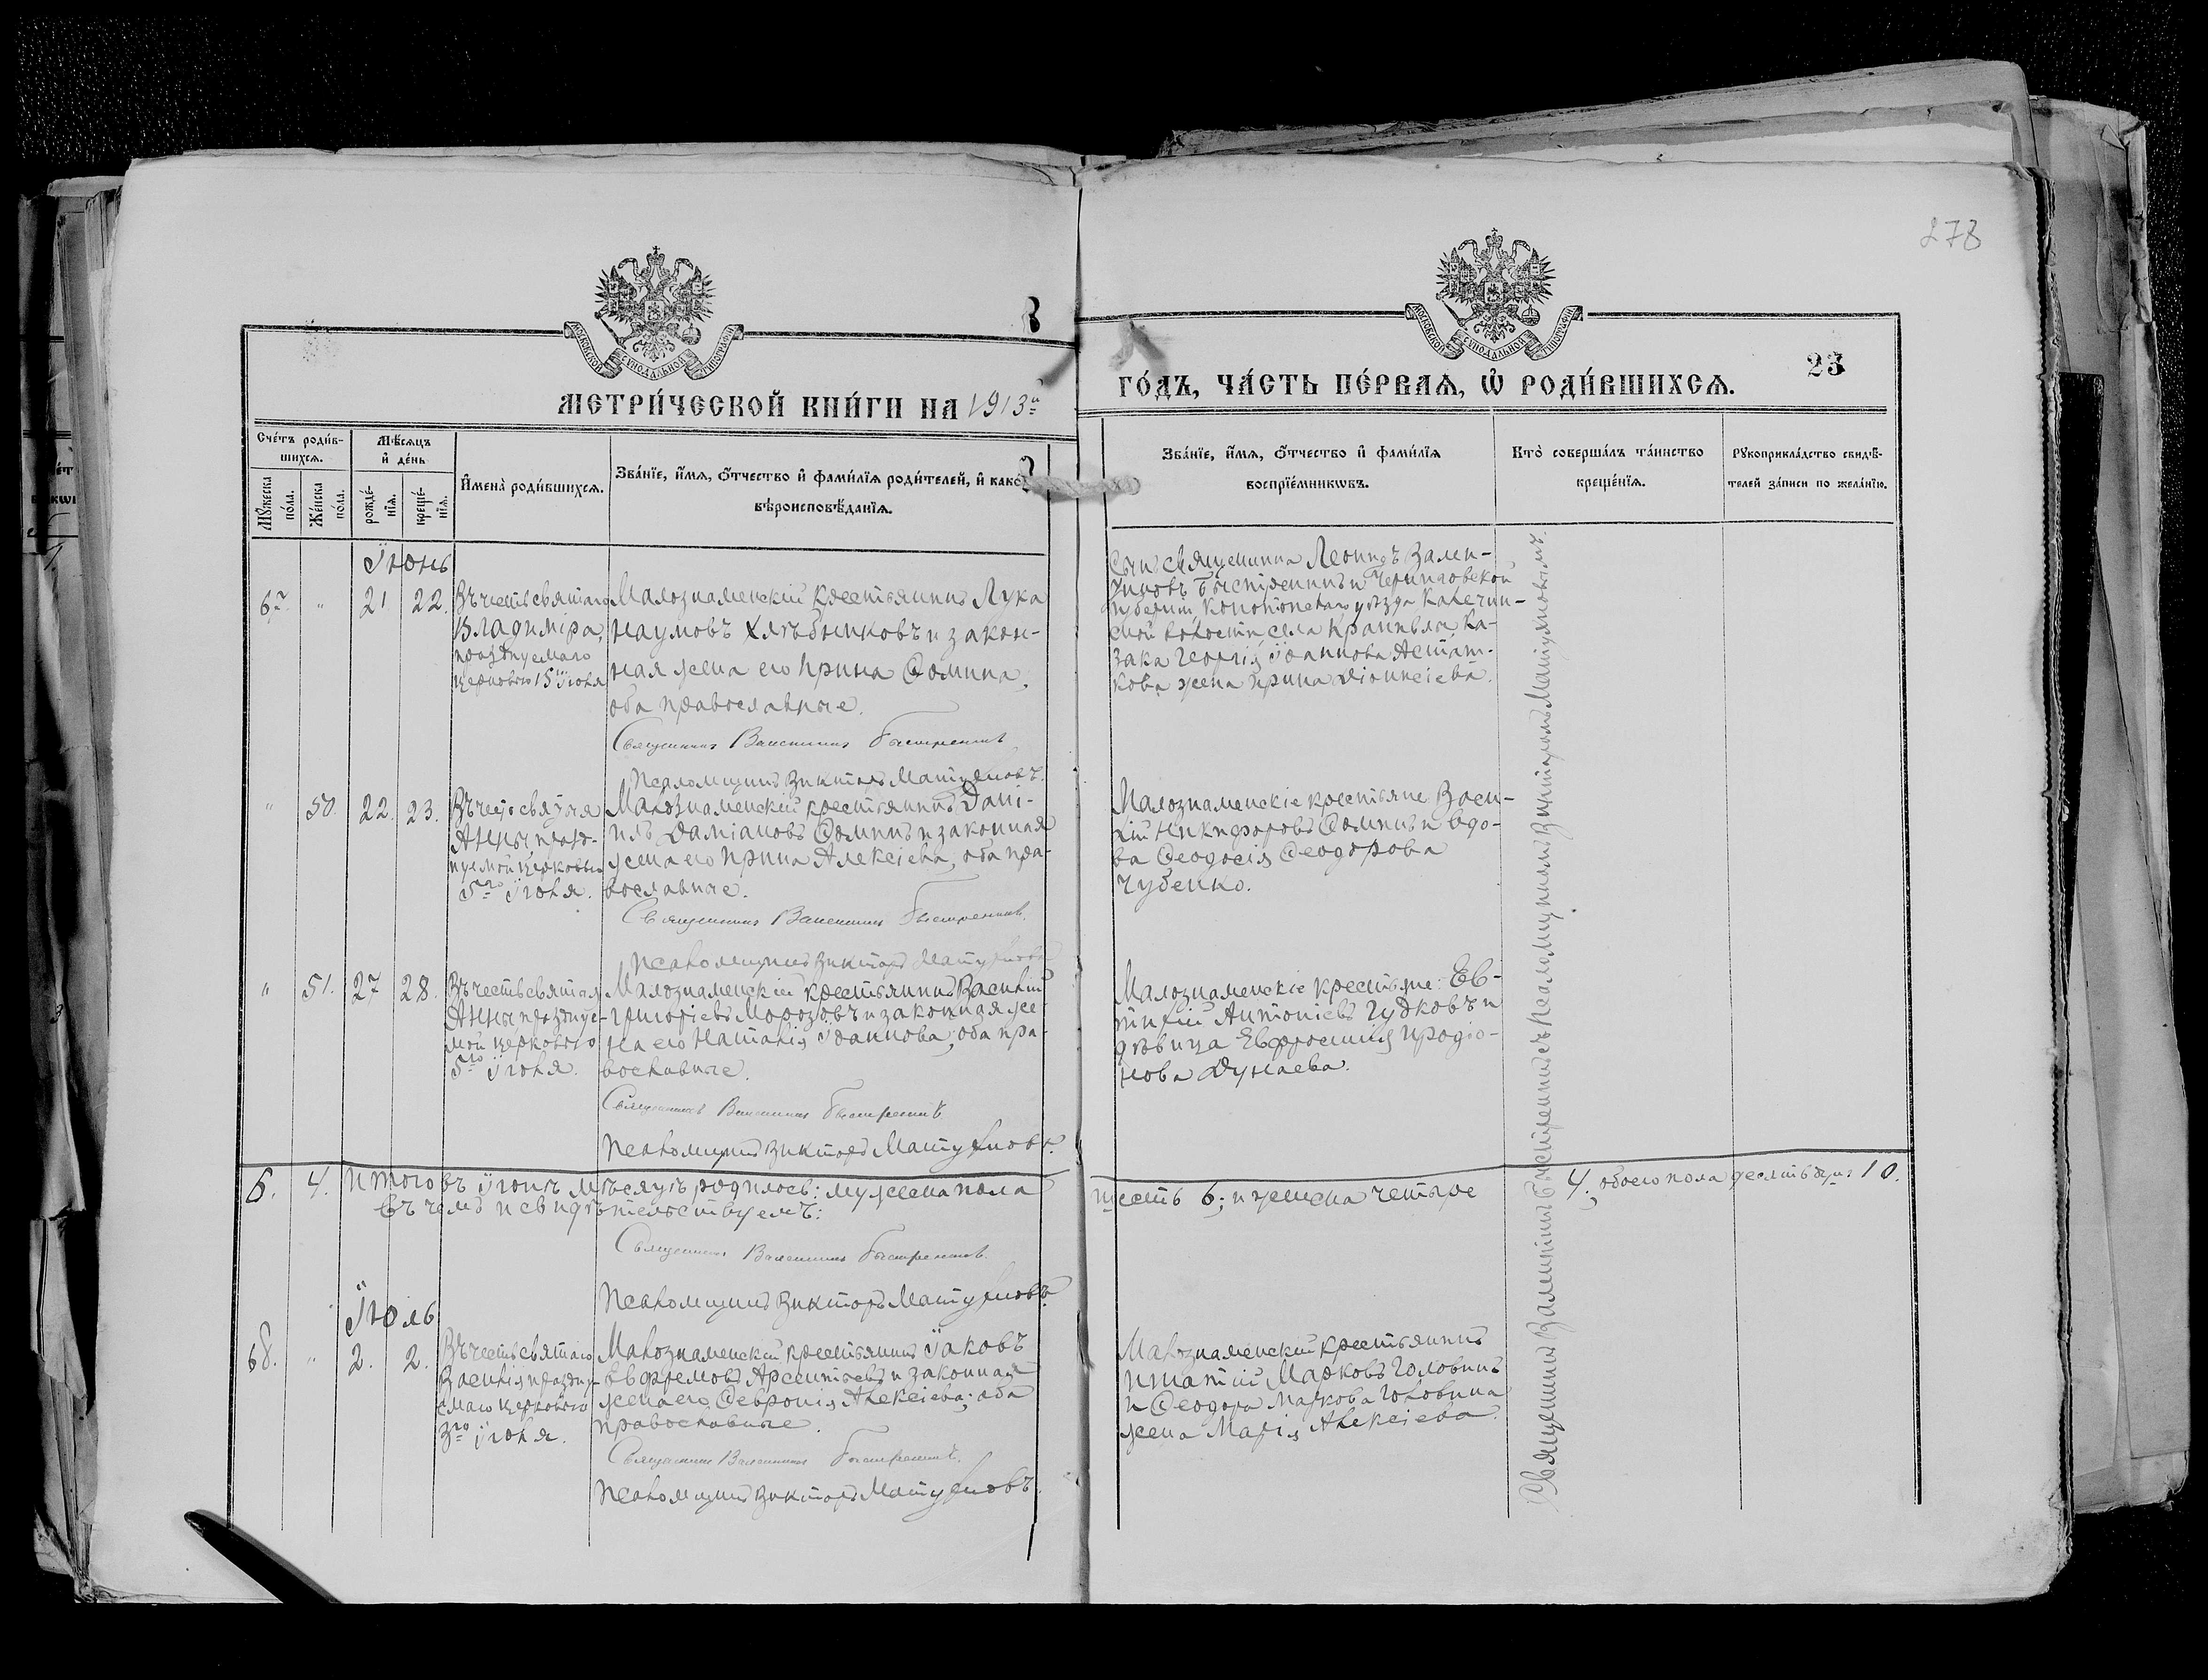 278
23
МОСКОВСКОЙ СѴНОДАЛЬНОЙ ТИПОГРАФІИ
МОСКОВСКОЙ СѴНОДАЛЬНОЙ ТИПОГРАФІИ
МЕТРИ́ЧЕСКОЙ КНИ́ГИ НА 1913й
ГО́ДЪ, ЧА́СТЬ ПЕ́РВАѦ, Ѡ҆ РОДИ́ВШИХСѦ.
Сче́тъ роди́в-
шихсѧ.
Мѣ́сѧцъ
и҆ де́нь
Мꙋ́жеска
по́ла.
Же́нска
по́ла.
рожде́-
нїѧ.
креще́-
нїѧ.
И҆мена̀ роди́вшихсѧ.
Зва́нїе, и҆́мѧ, ѻ҆́тчество и҆ фами́лїѧ роди́телей, и҆ како́
вѣроисповѣ́данїѧ.
Зва́нїе, и҆́мѧ, ѻ҆́тчество и҆ фами́лїѧ
воспрїе́мникѡвъ.
Кто̀ соверша́лъ та́инство
креще́нїѧ.
Рꙋкоприкла́дство свидѣ́-
телей за́писи по жела́нїю.
Іюнь
67. " 21 22.
Въ честь святаго
Владиміра,
празднуемаго
церковью 15 Іюля
Малознаменскій крестьянинъ Лука
Наумовъ Хлѣбниковъ и закон-
ная жена его Ирина Ѳомина,
оба православные.
Священникъ Валентинъ Быстренинъ
Псаломщикъ Викторъ Матуяновъ.
Сынъ священника Леонидъ Вален-
тиновъ Быстренинъ и Черниговской
губерніи Конотопскаго уѣзда
волости, села ка-
зака Георгія Іоаннова
жена Ирина Діонисіева.
" 50. 22. 23.
Въ честь святыя
Анны празд-
нуемой церковью
5го Іюля.
Малознаменскій крестьянинъ Дані-
илъ Даміановъ Ѳоминъ и законная
жена его Ирина Алексіева, оба пра-
вославные.
Священникъ Валентинъ Быстренинъ.
Псаломщикъ Викторъ Матуяновъ
Малознаменскіе крестьяне: Васи-
лій Никифоровъ Ѳоминъ и вдо-
ва Ѳеодосія Ѳеодорова
Чубенко.
" 51. 27 28.
Въ честь святыя
Анны празднуе-
мой церковью
5го Іюля.
Малознаменскій крестьянинъ Василій
Григоріевъ Морозовъ и законная же-
на его Наталія Іоаннова, оба пра-
вославные.
Священникъ Валентинъ Быстренинъ
Псаломщикъ Викторъ Матуяновъ.
Малознаменскіе крестьяне: Ев-
тихій Антоніевъ Гудковъ и
дѣвица Евфросинія Иродіо-
нова Дунаева.
6. 4. Итого въ Іюнѣ мѣсяцѣ родилось: мужеска пола
шесть 6; и женска четыре
4, обоего пола десять душъ 10.
въ чемъ и свидѣтельствуемъ:
Священникъ Валентинъ Быстренинъ.
Псаломщикъ Викторъ Матуяновъ.
Іюль
68. " 2. 2.
Въ честь святаго
Василія праздну-
емаго церковью
3го Іюля.
Малознаменскій крестьянинъ Іаковъ
Евфремовъ Арсентьевъ и законная
жена его Ѳевронія Алексіева; оба
православные.
Священникъ Валентинъ Быстренинъ.
Псаломщикъ Викторъ Матуяновъ.
Малознаменскій крестьянинъ
Игнатій Марковъ Головинъ
и Ѳеодора Маркова Головина
жена Марія Алексіева.
Священникъ Валентинъ Быстренинъ съ Псаломщикомъ Викторомъ Матуяновымъ.